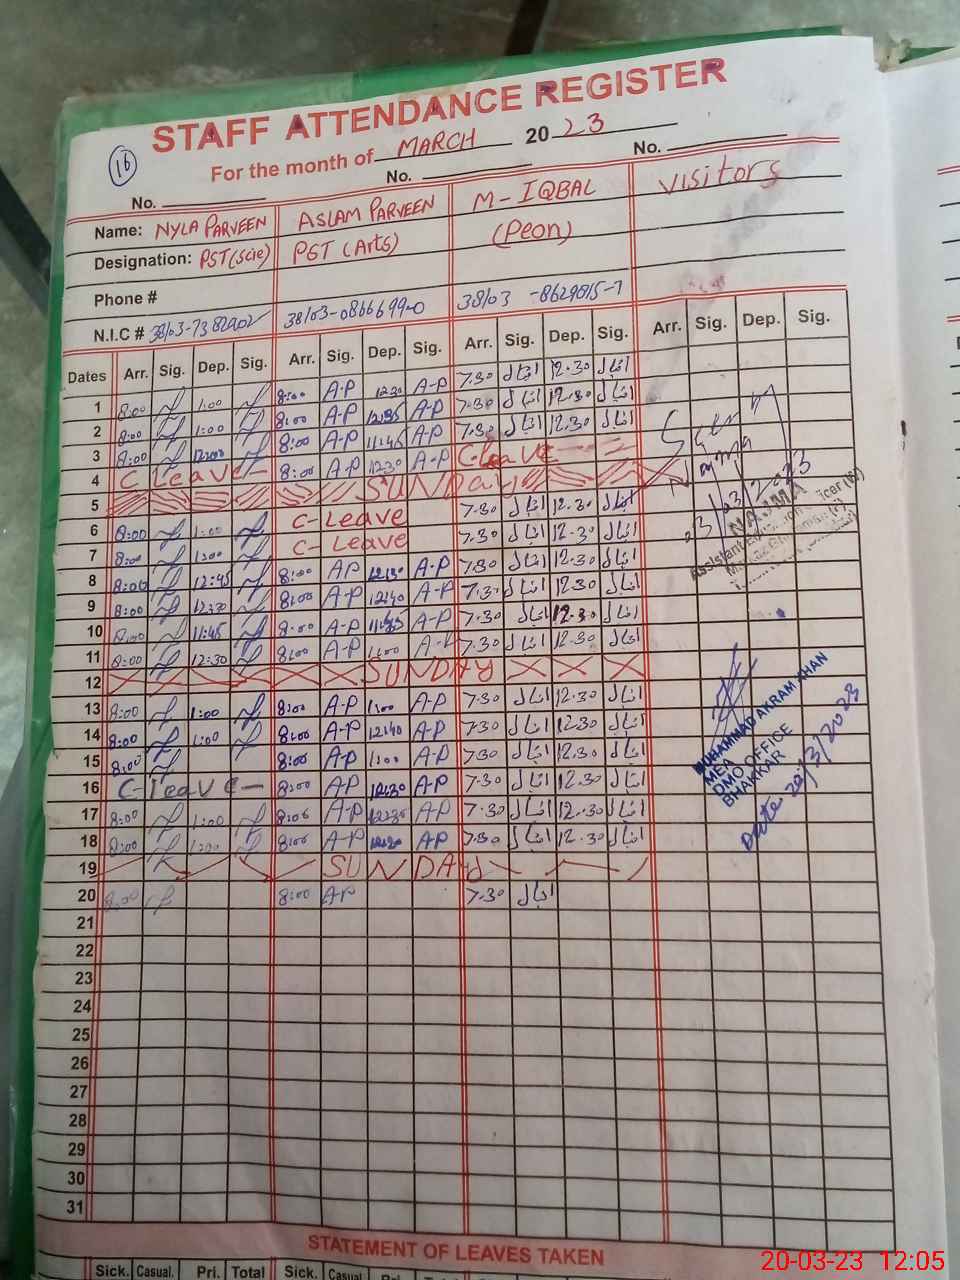 STAFF ATTENDANCE REGISTER
16 For the month of MARCH 2023
No. No. No.
Name: NYLA PARVEEN ASLAM PARVEEN M-IQBAL Visitors
Designation: PST(Scie) PST (Arts) (Peon)
Phone #
N.I.C # 38103-7382902 38103-0866699-0 38103 -8629815-7
Dates Arr. Sig. Dep. Sig. Arr. Sig. Dep. Sig. Arr. Sig. Dep. Sig. Arr. Sig. Dep. Sig.
1 8:00 1:00 8:00 A-P 12:30 A-P 7.30 اقبال 12.30 اقبال
2 8:00 1:00 8:00 A-P 12:35 A-P 7.30 اقبال 12.30 اقبال
3 8:00 12:00 8:00 A-P 11:45 A-P 7.30 اقبال 12.30 اقبال
4 C Leave 8:00 A-P 12:30 A-P C-Leave
5 SUNDAY
6 8:00 1:00 C-Leave 7.30 اقبال 12.30 اقبال
7 8:00 1:00 C-Leave 7.30 اقبال 12.30 اقبال
8 8:00 12:45 8:00 AP 12:30 A-P 7.30 اقبال 12.30 اقبال
9 8:00 12:30 8:00 A-P 12:40 A-P 7.30 اقبال 12.30 اقبال
10 8:00 11:45 8:00 A-P 11:45 A-P 7.30 اقبال 12.30 اقبال
11 8:00 12:30 8:00 A-P 1:00 7.30 اقبال 12.30 اقبال
12 SUNDAY
13 8:00 1:00 8:00 A-P 1:00 AP 7.30 اقبال 12.30 اقبال
14 8:00 1:00 8:00 A-P 12:40 A-P 7.30 اقبال 12.30 اقبال
15 8:00 8:00 AP 1:00 A-P 7.30 اقبال 12.30 اقبال
16 C-Leave 8:00 AP 12:30 AP 7.30 اقبال 12.30 اقبال
17 8:00 1:00 8:00 A-P 12:30 AP 7.30 اقبال 12.30 اقبال
18 8:00 1:00 8:00 A-P 12:30 AP 7.30 اقبال 12.30 اقبال
19 SUNDAY
20 8:00 8:00 AP 7.30 اقبال
21
22
23
24
25
26
27
28
29
30
31
Seen
NAJMA
Assistant Education
MUHAMMAD AKRAM KHAN
MEA
DMO OFFICE
BHAKKAR
Date 20/3/2023
STATEMENT OF LEAVES TAKEN
Sick. Casual. Pri. Total Sick. Casual
20-03-23 12:05